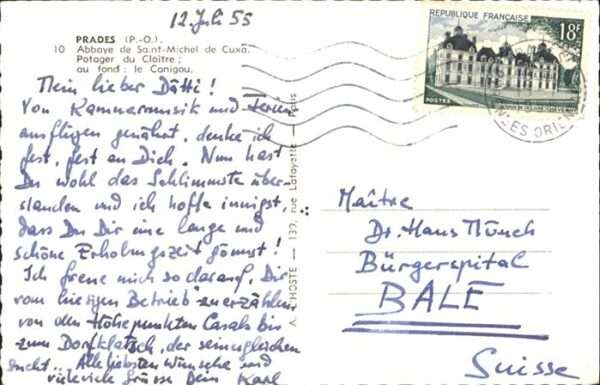 12. Juli 55
PRADES (P.-O.).
10 Abbaye de Saint-Michel de Cuxa.
Potager du Cloître ;
au fond : le Canigou.
Mein lieber Dätti!
Von Kammermusik und Ferien
ausflügen genährt, denke ich
fest, fest an Dich. Nun hast
Du wohl das Schlimmste über-
standen und ich hoffe innigst,
dass Du Dir eine lange und
schöne Erholungszeit gönnst!
Ich freue mich so darauf, Dir
vom hiesigen Betrieb zu erzählen,
von den Höhepunkten Casals bis
zum Dorfklatsch, der seinesgleichen
sucht.. Alle liebsten Wünsche und
vielevielev Grüsse Dein Karl
A. L'HOSTE — 139, rue Lafayette — Paris
RÉPUBLIQUE FRANÇAISE
18F
POSTES
ES ORIEN
Maître
Dr. Hans Münch
Bürgerspital
BALE
Suisse